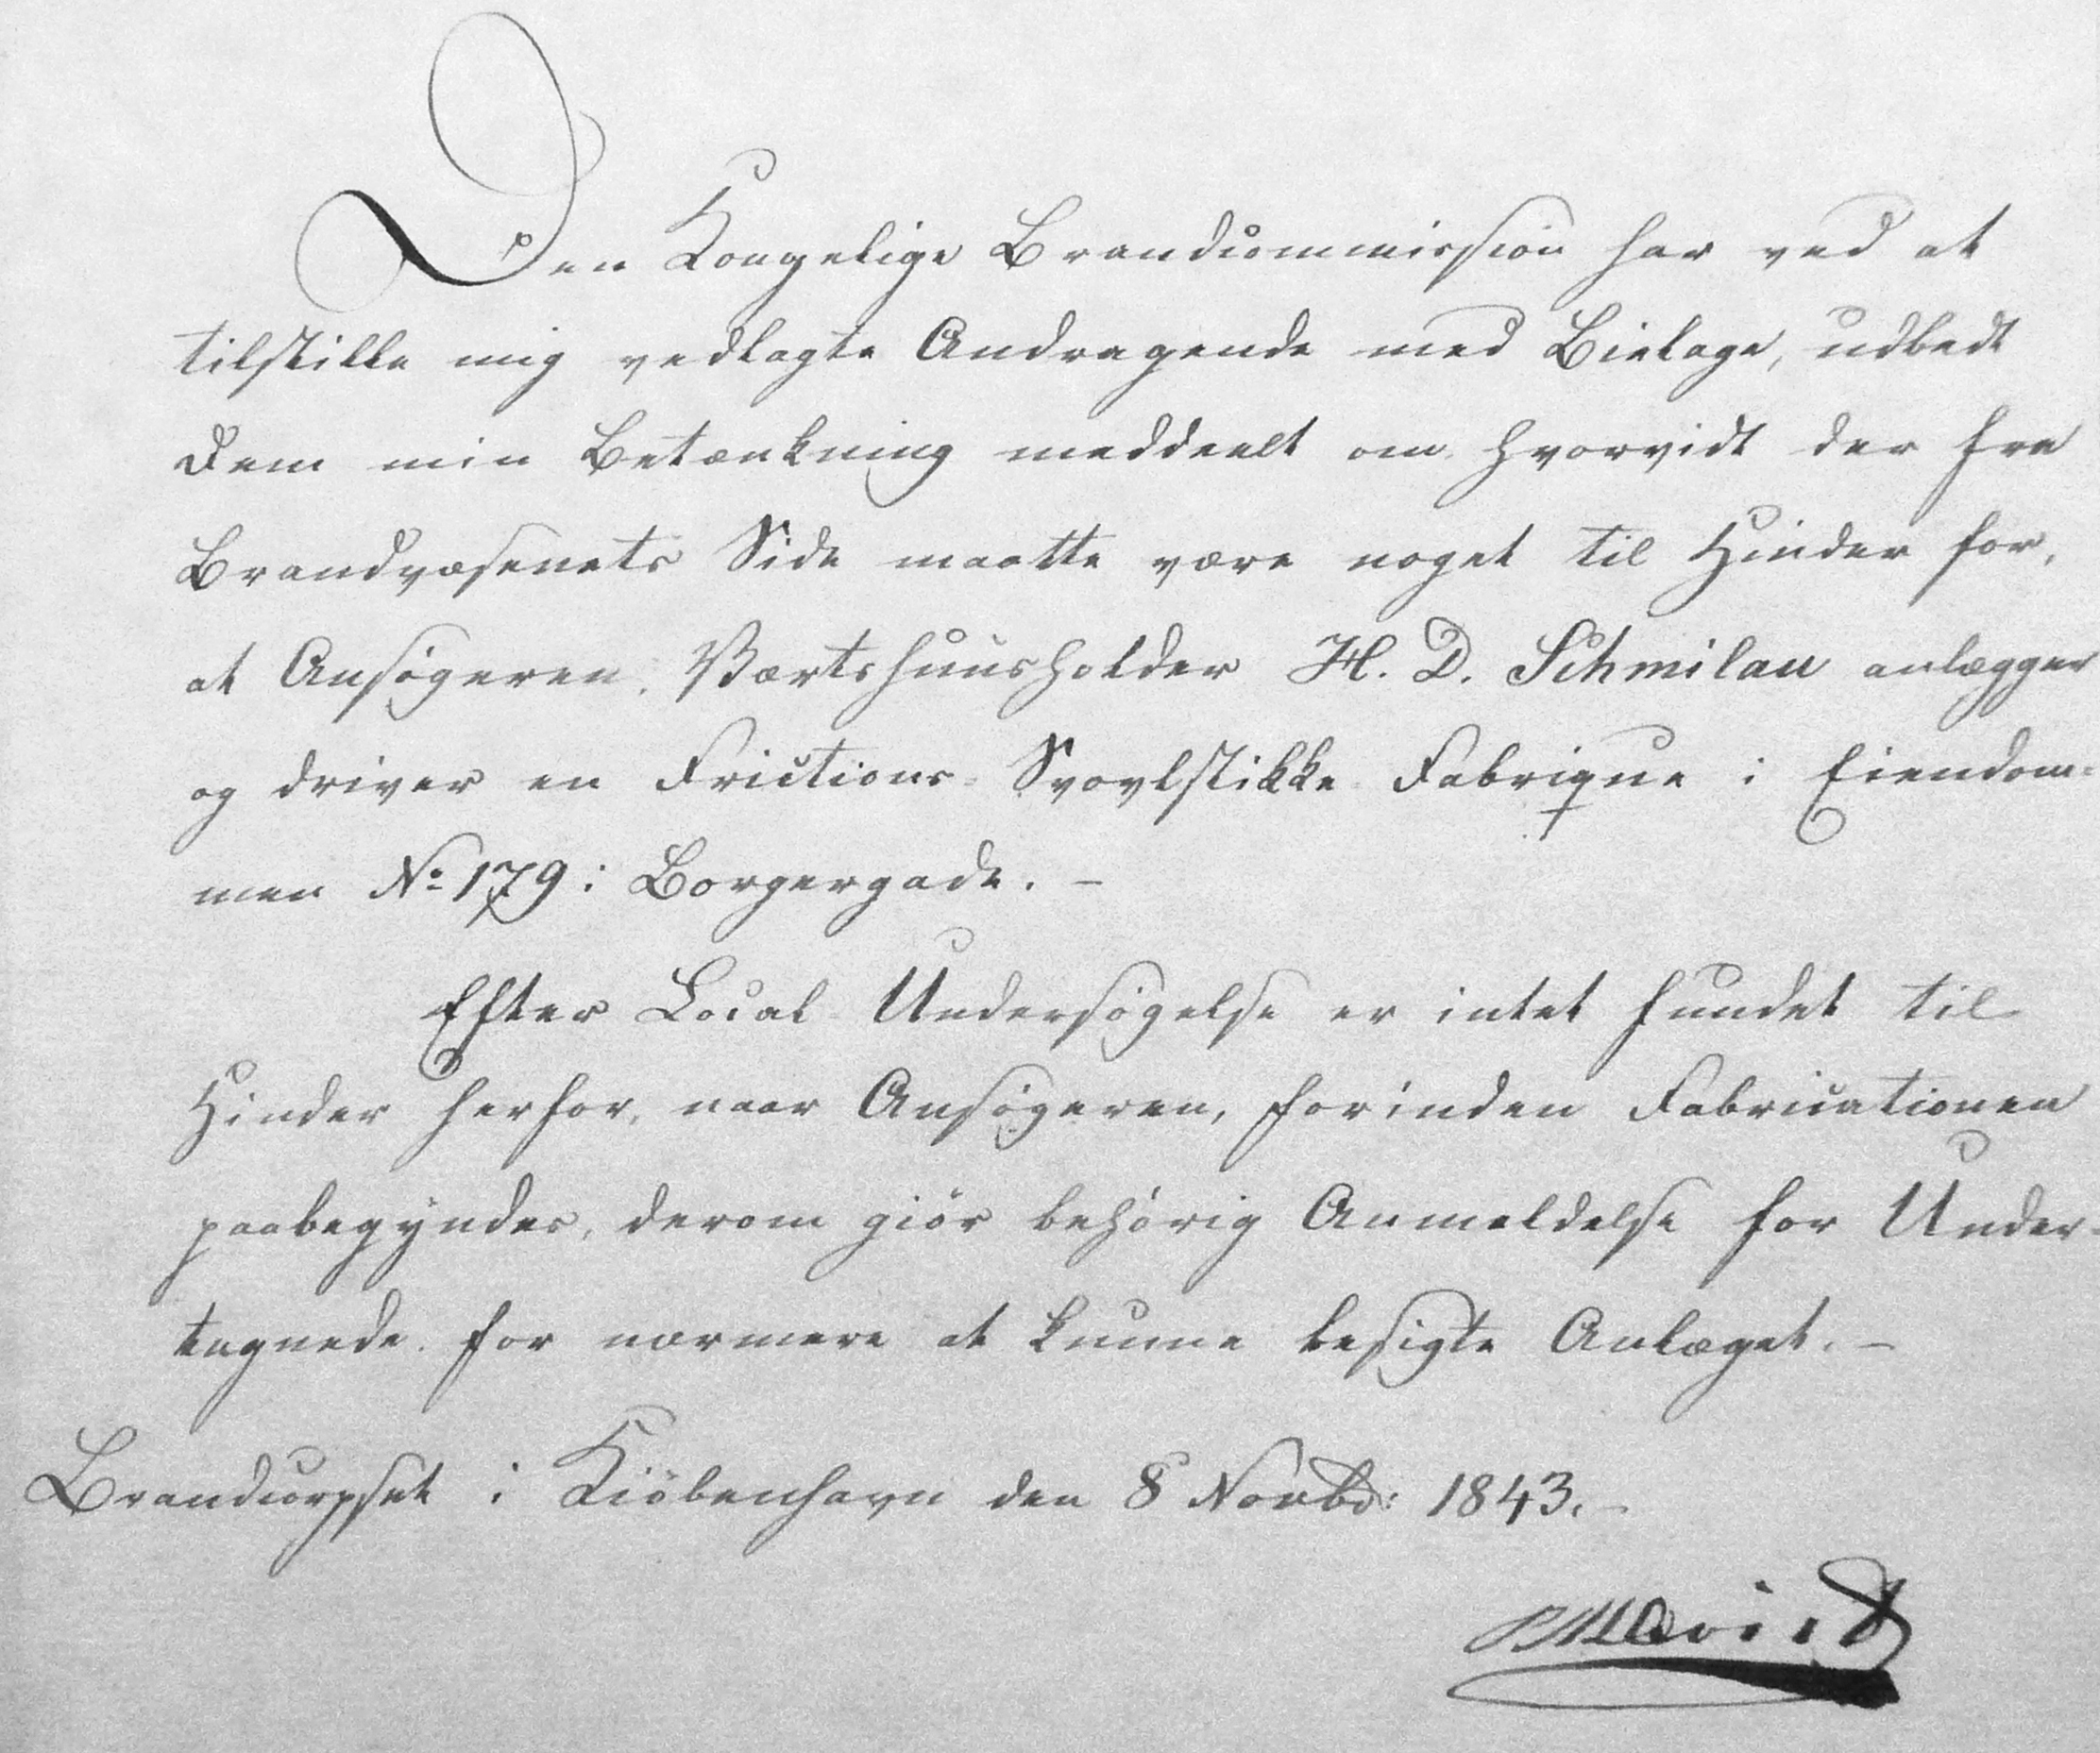 Den Kongelige Brandcommission har ved at
tilstille mig vedlagte Andragende med Bielage, udbedt
Dem min Betænkning meddeelt om hvorvidt der fra
Brandvæsenets Side maatte være noget til Hinder for,
at Ansøgeren, Værtshuusholder H. D. Schmilau anlægger
og driver en Frictions-Svovlstikke-Fabrique i Eiendom-
men No 179 i Borgergade. –
Efter Local-Undersøgelse er intet fundet til
Hinder herfor, naar Ansøgeren, forinden Fabricationen
paabegyndes, derom giör behørig Anmeldelse for Under-
tegnede, for nærmere at kunne besigte Anlæget. –
Brandcorpset i Kiöbenhavn den 8 Novbr: 1843. –